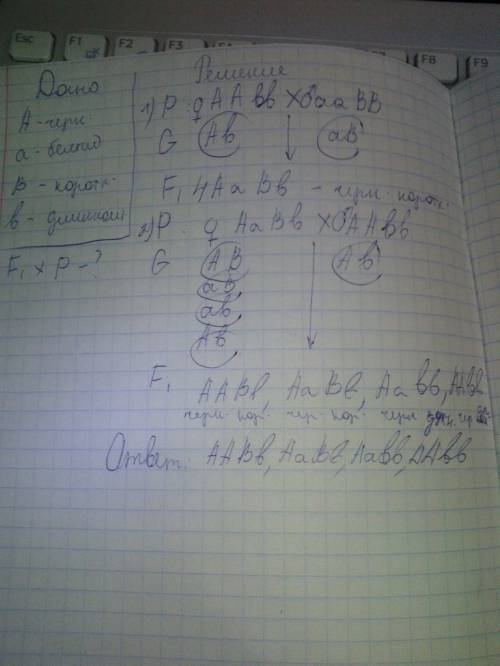 Esc F1 F2 F3 F8 F9
Дано
А - черн
а - белый
В - коротк.
в - длинношёр
F₁ x P - ?
Решение
1) P: ♀ААвв x ♂ааВВ
G Ав аВ
F₁ 4АаВв - черн. коротк.
2) P: ♀ АаВв x ♂ААвв
G АВ Ав
аВ
ав
Ав
F₁ ААВв, АаВв, Аавв, ААвв
черн. кор. чер. кор. черн
Ответ: ААВв, АаВв, Аавв, ААвв